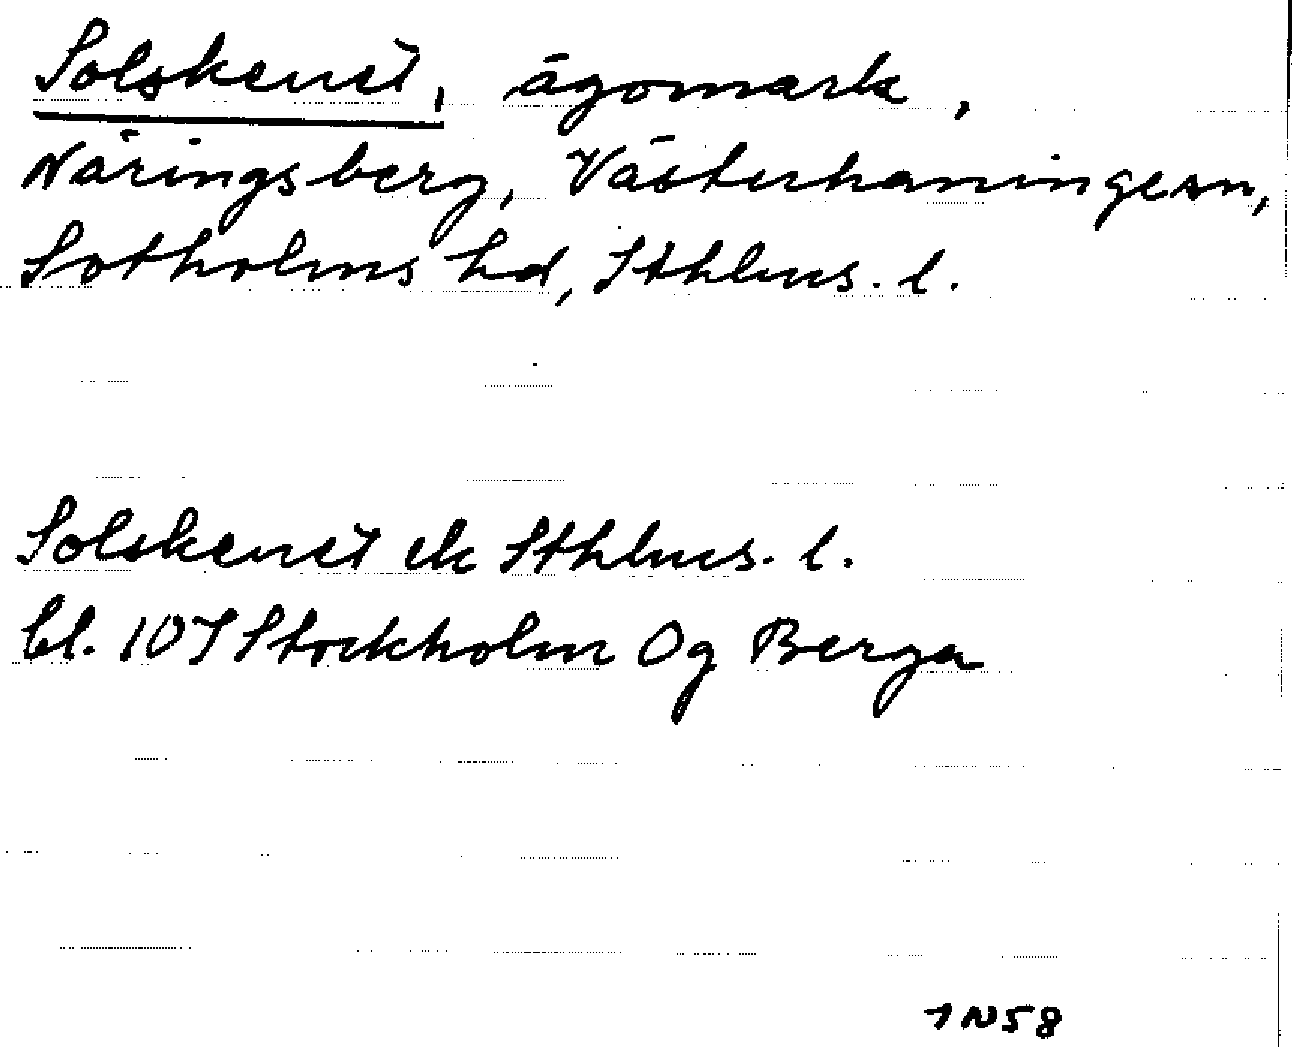 Solskenet, ägomark,
Näringsberg, Västerhaningesn,
Sotholms hd, Sthlms. l.
Solskenet ek Sthlms. l.
bl. 107 Stockholm Og Berga
7N58